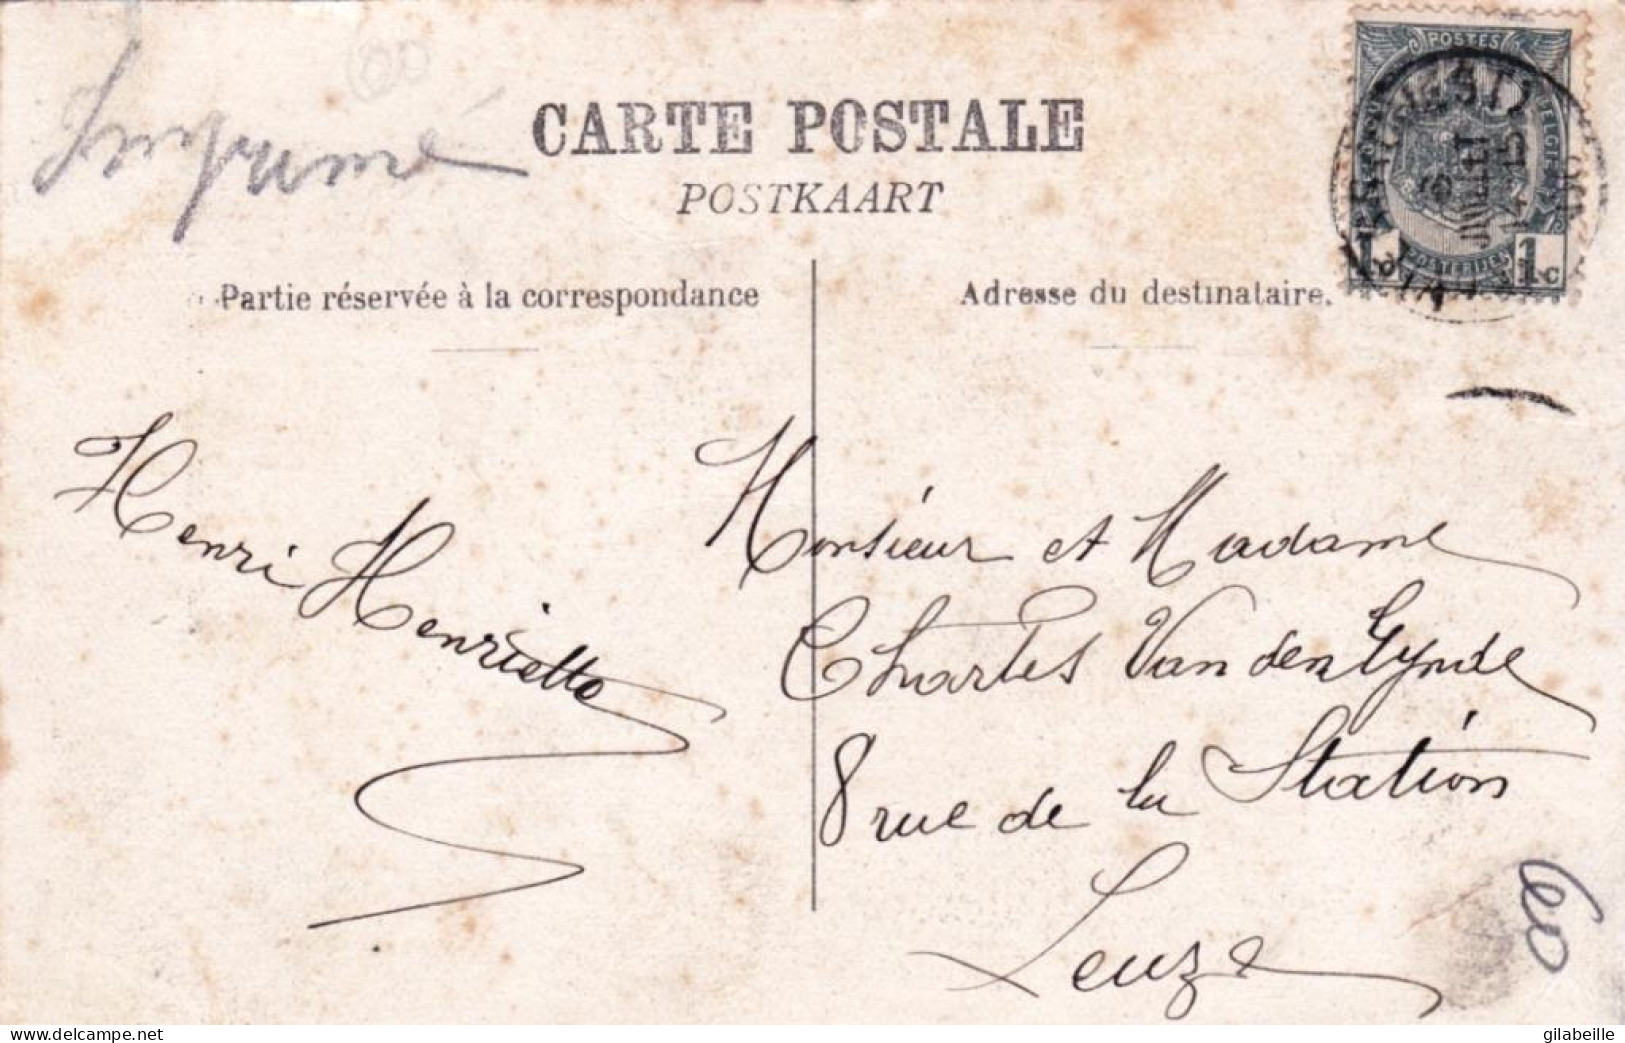 60
Imprimé
CARTE POSTALE
POSTKAART
POSTES
1c
Partie réservée à la correspondance
Adresse du destinataire.
Henri Henriette
Monsieur et Madame
Charles Van den Eynde
8 rue de la Station
Leuze
60
www.delcampe.net
gilabeille